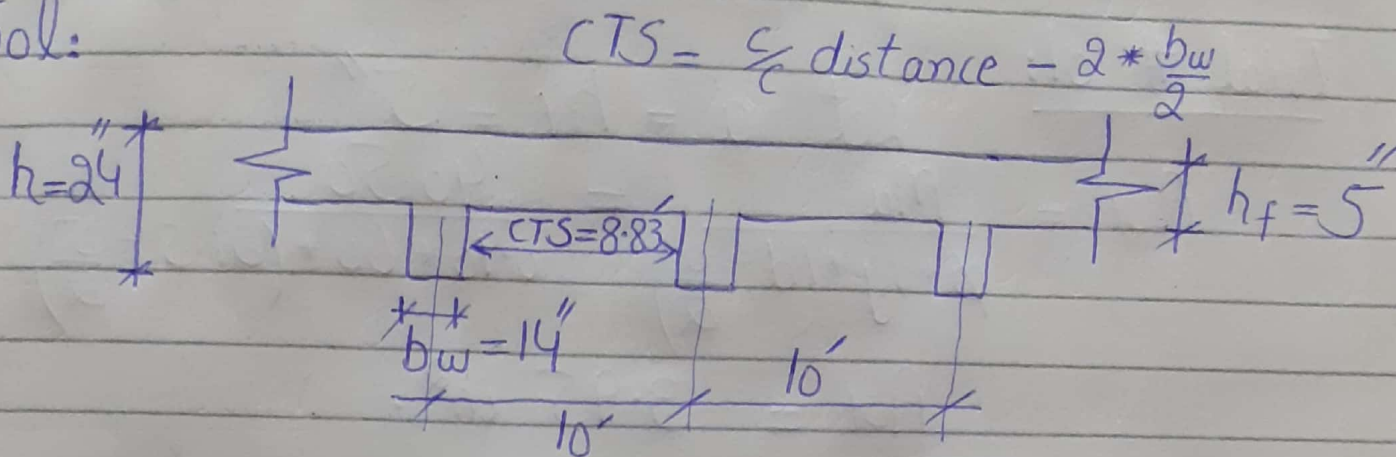 ol:
CTS = c/c distance - 2 * bw/2
h=24"
CTS=8.83'
hf = 5"
bw=14"
10'
10'